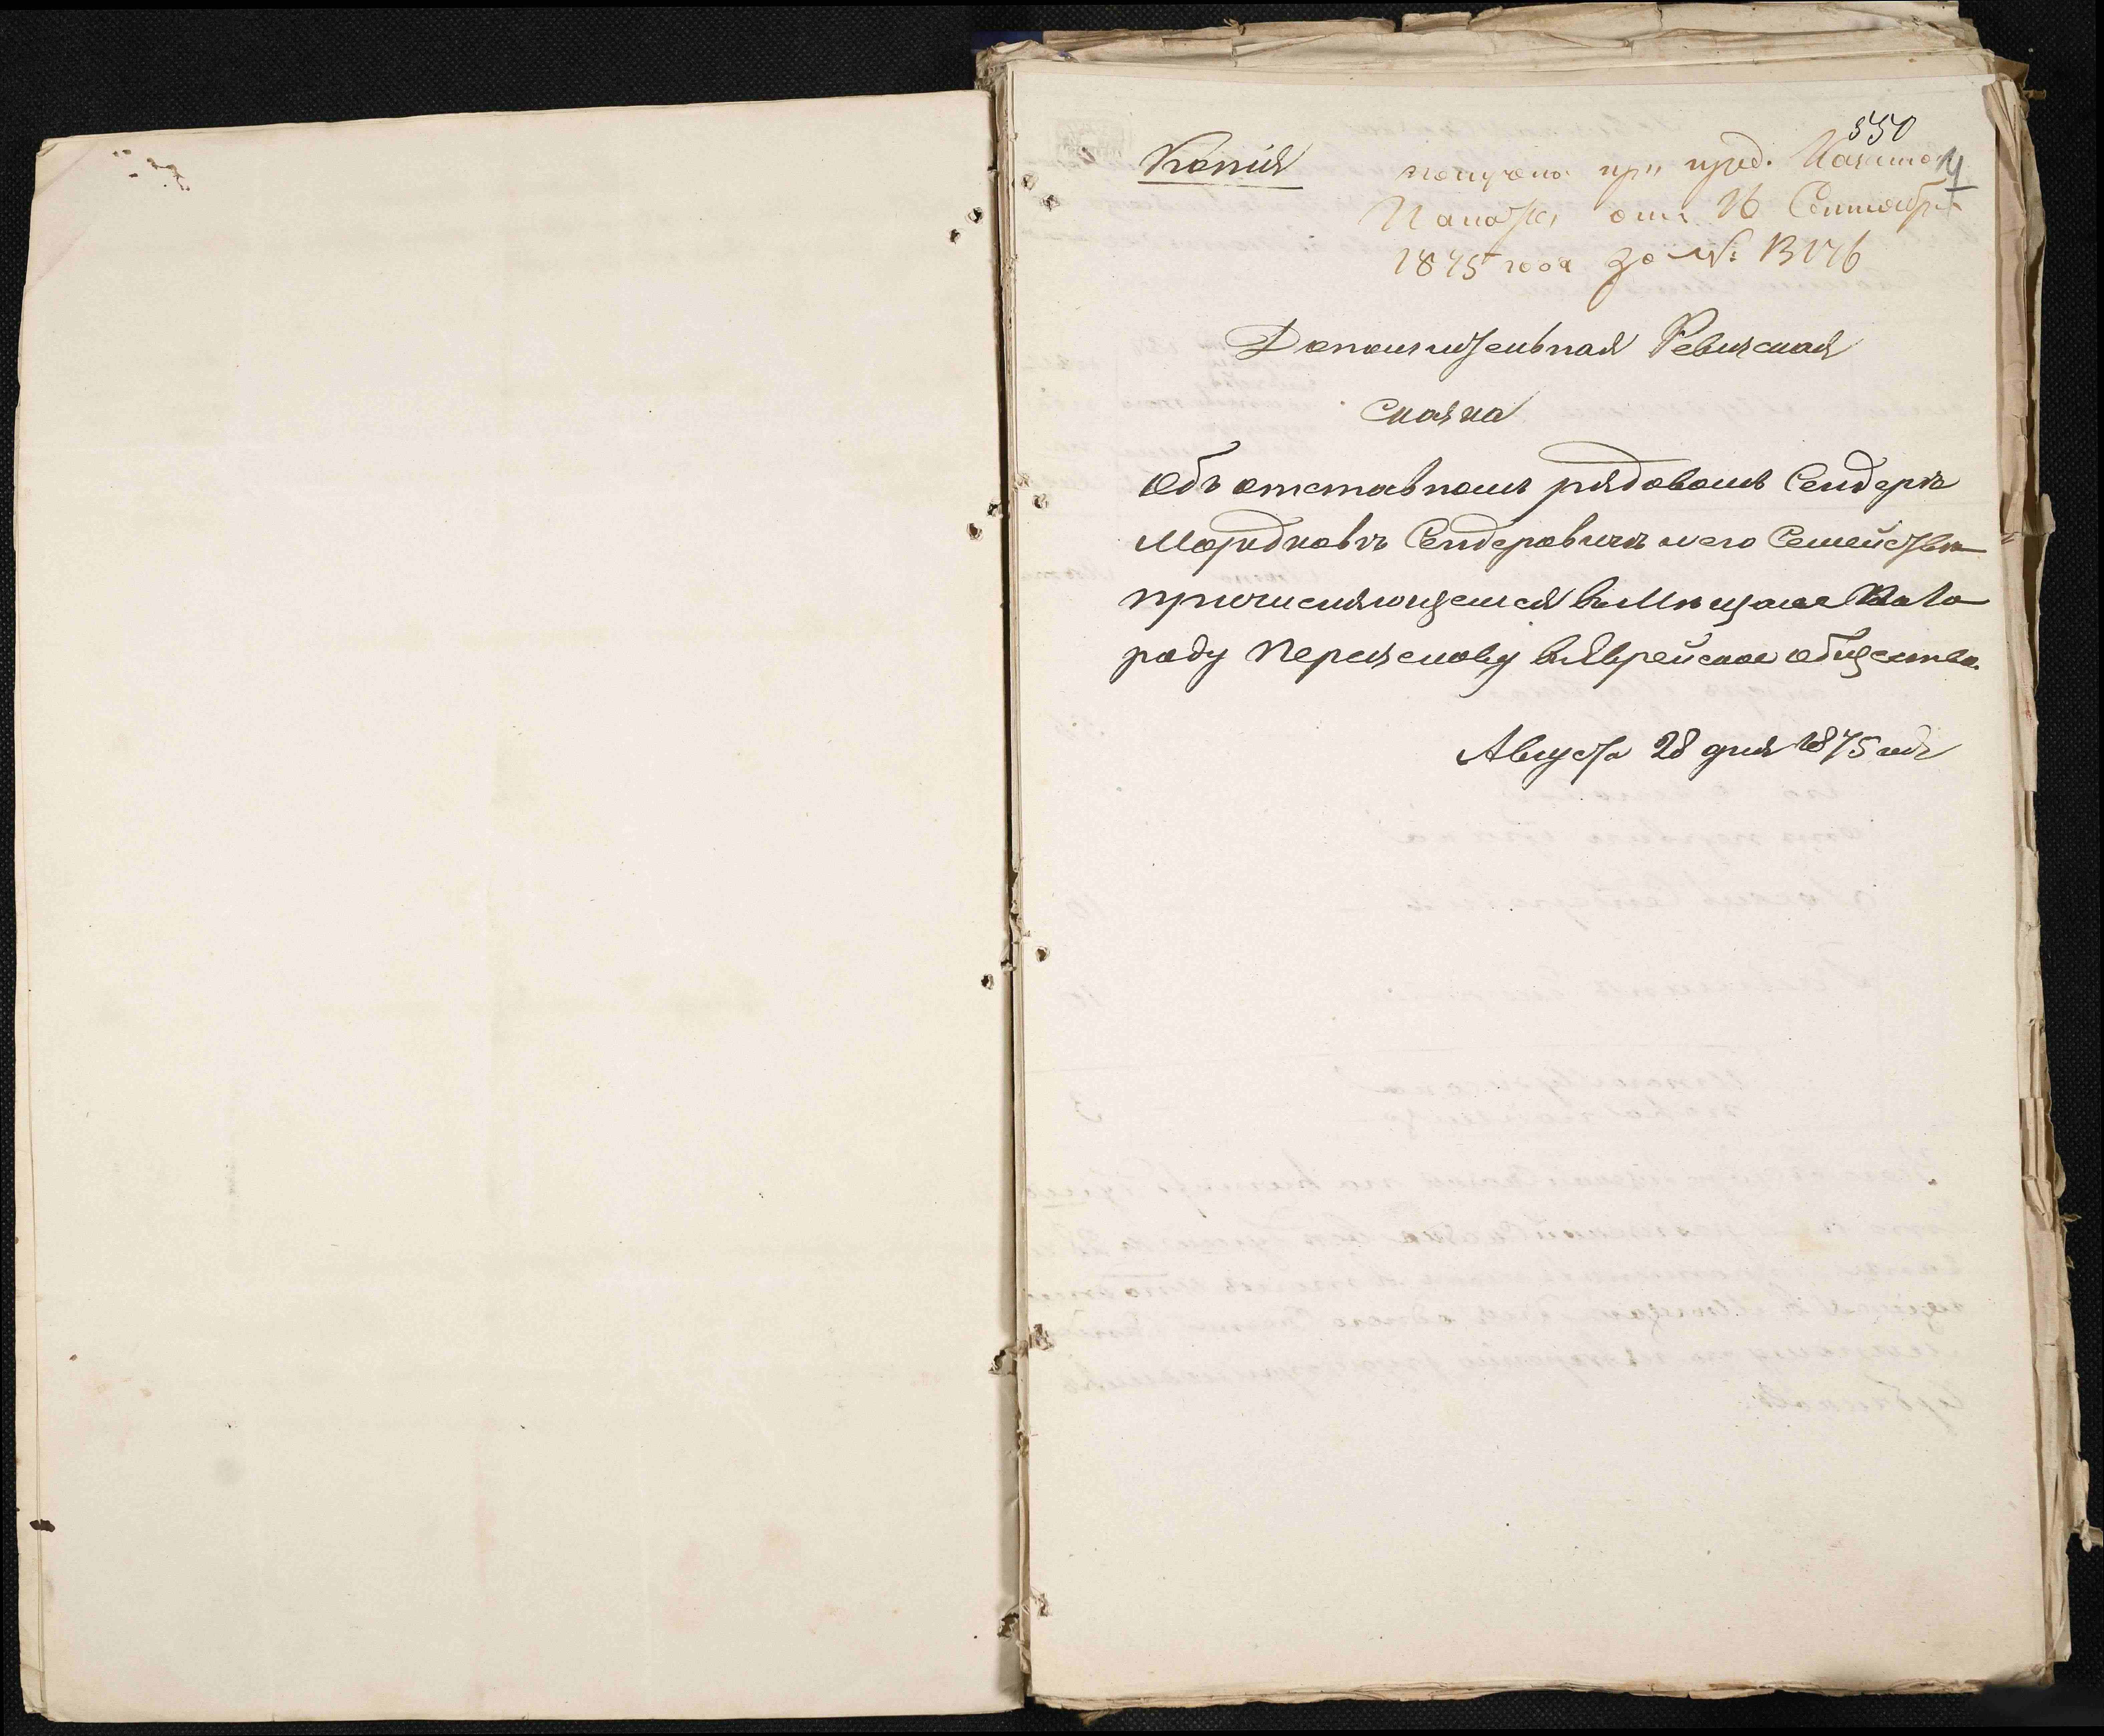 550
Копія
получена при пред. Казенной
Палаты, отъ 26 Сентября
1875 года за №: 13176
Дополнительная Ревизская
Сказка
Объ отставномъ рядовомъ Сендерѣ
Мордковѣ Сендеровичѣ и его Семействѣ
причисляющемся въ Мѣщане
роду въ Еврейское общество.
Августа 28 дня 1875 года